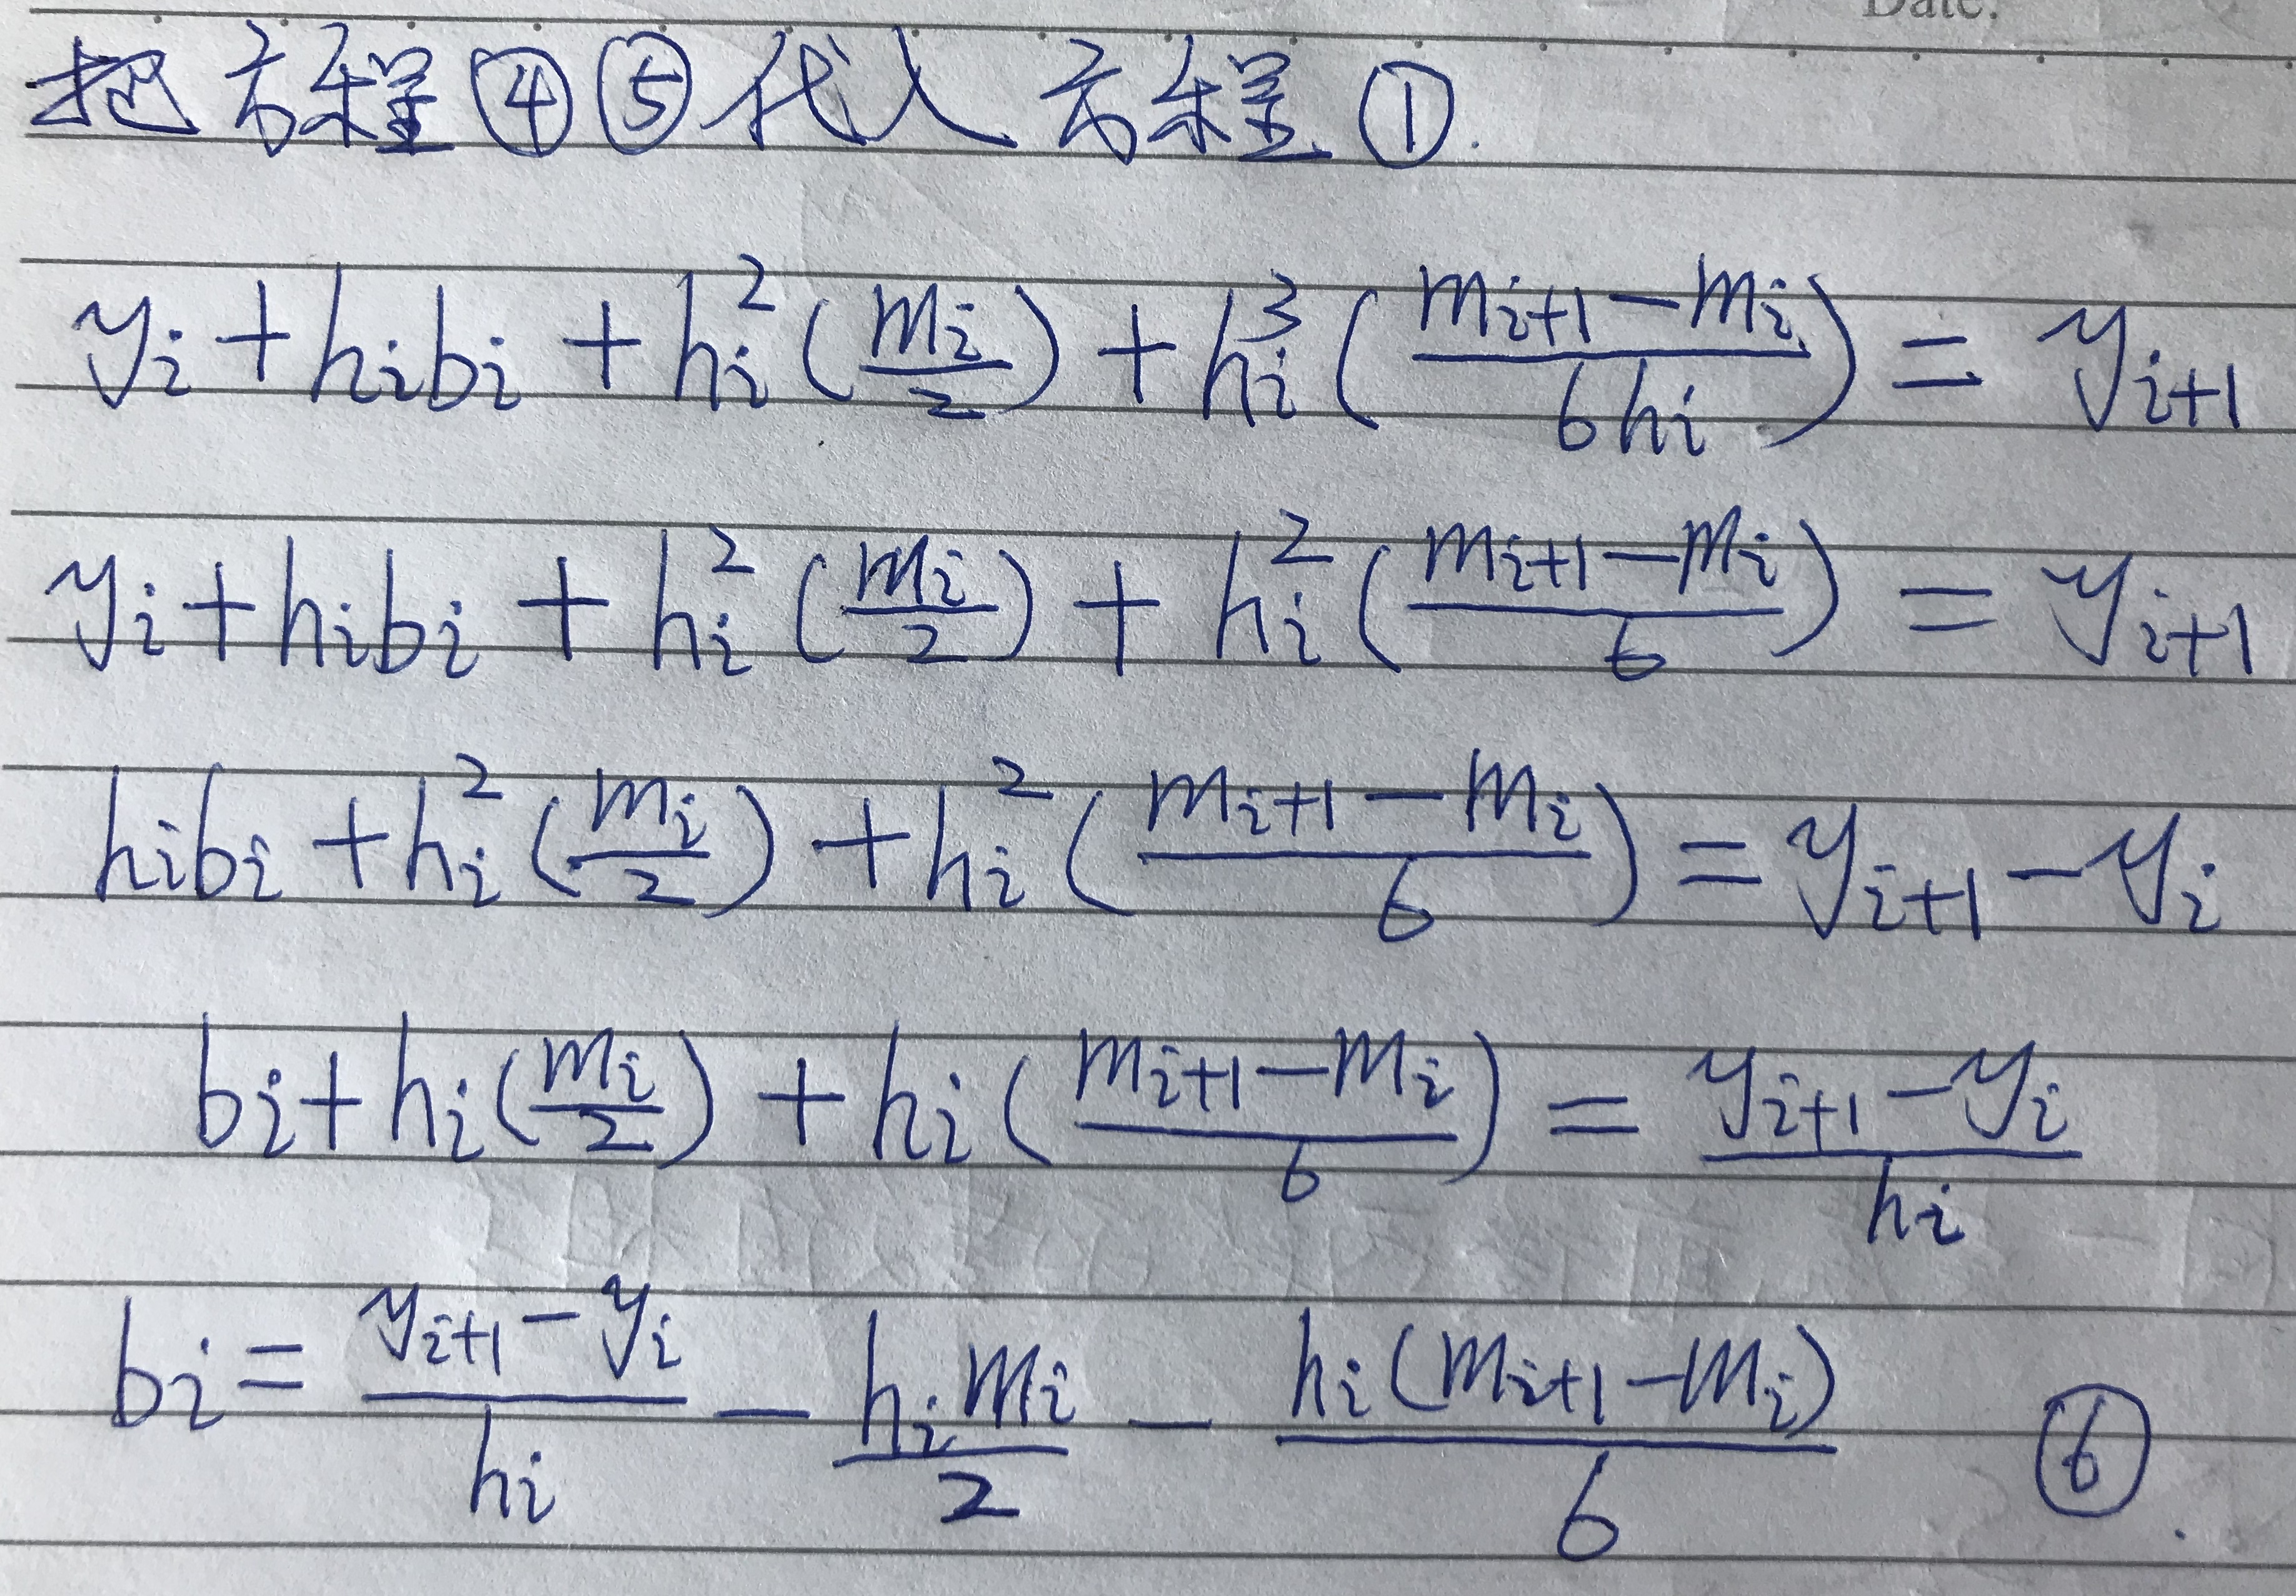 Date.
把方程④⑤代入方程①.
y_i + h_i b_i + h_i^2 (m_i/2) + h_i^3 ((m_{i+1} - m_i)/(6h_i)) = y_{i+1}
y_i + h_i b_i + h_i^2 (m_i/2) + h_i^2 ((m_{i+1} - m_i)/6) = y_{i+1}
h_i b_i + h_i^2 (m_i/2) + h_i^2 ((m_{i+1} - m_i)/6) = y_{i+1} - y_i
b_i + h_i (m_i/2) + h_i ((m_{i+1} - m_i)/6) = (y_{i+1} - y_i)/h_i
b_i = (y_{i+1} - y_i)/h_i - (h_i m_i)/2 - (h_i (m_{i+1} - m_i))/6 ⑥.